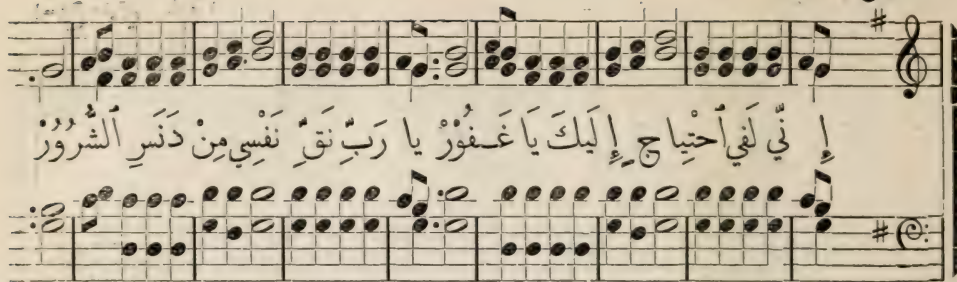 إِنِّي لَفِي ٱحْتِياجٍ إِلَيكَ يَا غَفُوْرْ يا رَبِّ نَقِّ نَفْسِي مِنْ دَنَسِ ٱلشُّرُورْ